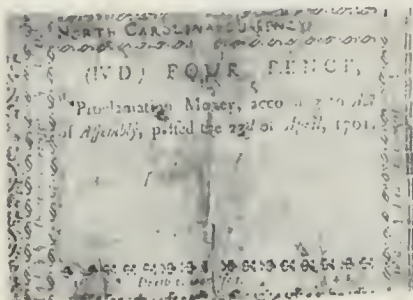 NORTH CAROLINA CURRENCY
(IVD) FOUR PENCE,
Proclamation Money, acco to Act
of Assembly, passed the 23d of April, 1761.